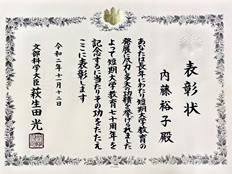 表彰状
内藤裕子殿
あなたは長年にわたり短期大学教育の
発展に尽力し多大な功績を挙げられました
よって短期大学教育七十周年を
記念するに当たりその功をたたえ
ここに表彰します
令和二年十一月十二日
文部科学大臣 萩生田光一